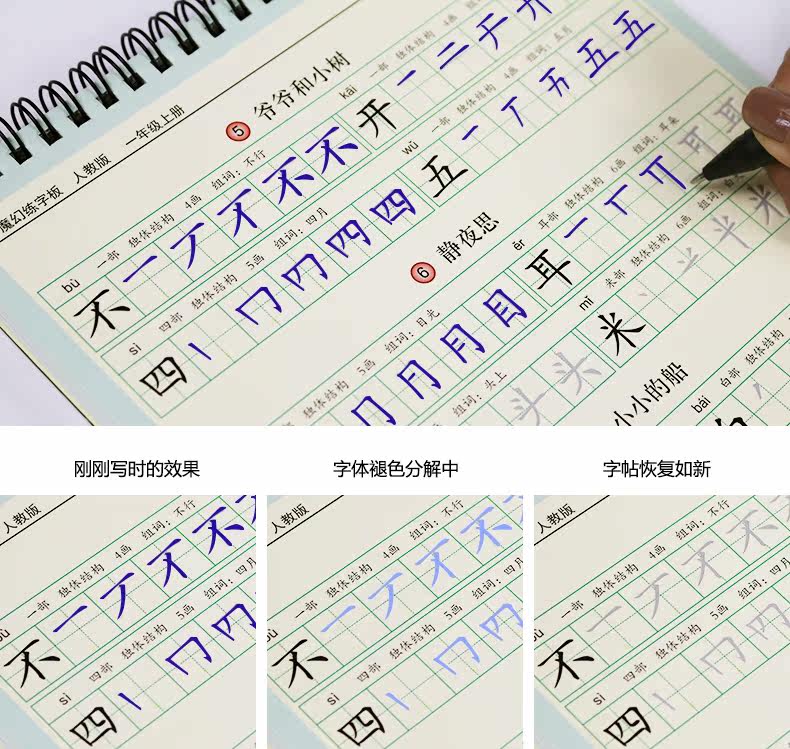 魔幻练字板 人教版 一年级上册
5 爷爷和小树
bù 一部 独体结构 4画 组词：不行
不 一 丆 不 不 不
kāi 一部 独体结构 4画
开 一 二 于 开
sì 四部 独体结构 5画 组词：四月
四 丨 冂 四 四 四
wǔ 一部 独体结构 4画 组词：五月
五 一 丆 五 五 五
6 静夜思
独体结构 5画 组词：目光
冂 月 月 目
ěr 耳部 独体结构 6画 组词：耳朵
耳 一 丅 丌 耳 耳
组词：头上
头 头
mǐ 米部 独体结构 6画
米 丶 丷 半 米
小小的船
bái 白部 独体结构
刚刚写时的效果
字体褪色分解中
字帖恢复如新
人教版
一部 独体结构 4画 组词：不行
不 一 丆 不 不
sì 四部 独体结构 5画 组词：四月
四 丨 冂 四
人教版
一部 独体结构 4画 组词：不行
不 一 丆 不 不
sì 四部 独体结构 5画 组词：四月
四 丨 冂 四
人教版
一部 独体结构 4画 组词：不行
不 一 丆 不 不
sì 四部 独体结构 5画 组词：四月
四 丨 冂 四